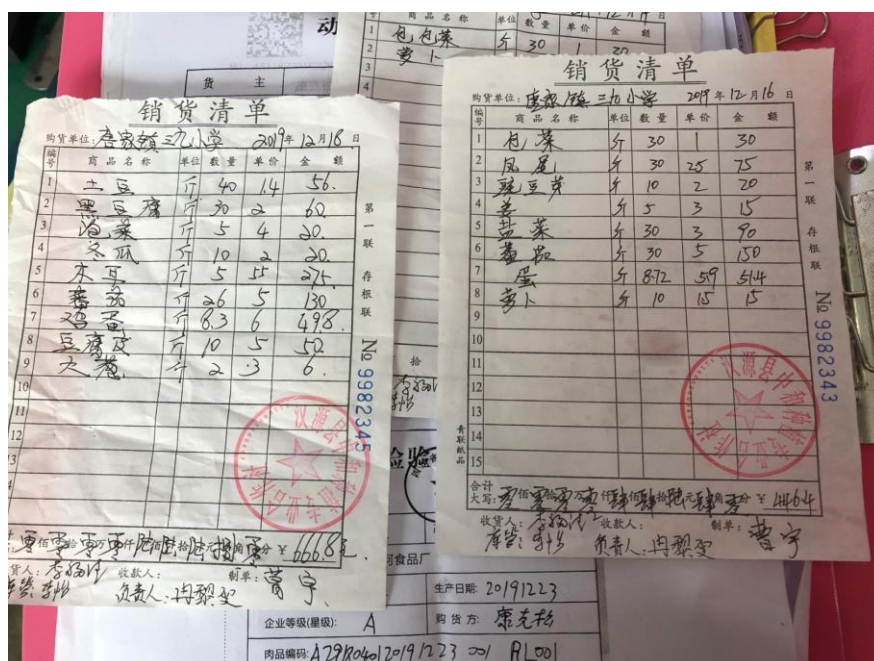 动
货 主
商品名称 单位 数量 单价 金额
1 包包菜 斤 30 1 30
2 萝卜
3
4
销货清单
购货单位:唐家镇三九小学 2019年12月18日
编号 商品名称 单位 数量 单价 金额
1 土豆 斤 40 1.4 56.
2 黑豆腐 斤 30 2 60.
3 菜 斤 5 4 20.
4 冬瓜 斤 10 2 20.
5 木耳 斤 5 55 275.
6 番茄 斤 26 5 130
7 鸡蛋 斤 8.3 6 49.8
8 豆腐皮 斤 10 5 50
9 大葱 斤 2 3 6.
10
11
12
13
第一联 存根联
No 9982345
汉源县中和种植专业合作社
零佰零拾零万零仟陆佰陆拾陆元捌角零分 ¥ 666.8元
收款人: 制单:曹宇
负责人:
销货清单
购货单位:唐家镇三九小学 2019年12月16日
编号 商品名称 单位 数量 单价 金额
1 包菜 斤 30 1 30
2 凤蛋 斤 30 25 75
3 豌豆芽 斤 10 2 20
4 姜 斤 5 3 15
5 盐菜 斤 30 3 90
6 番茄 斤 30 5 150
7 蛋 斤 8.72 5.9 51.4
8 萝卜 斤 10 1.5 15
9
10
11
12
13
14
15
第一联 存根联
No 9982343
青联纸品
汉源县中和种植专业合作社
合计大写:零佰零拾零万零仟肆佰肆拾陆元肆角零分 ¥ 446.4
收货人: 收款人: 制单:曹宇
负责人:
拾
检验
食品厂
生产日期:20191223
企业等级(星级): A 购货方:康克松
肉品编码:A2918040120191223 001 RL001